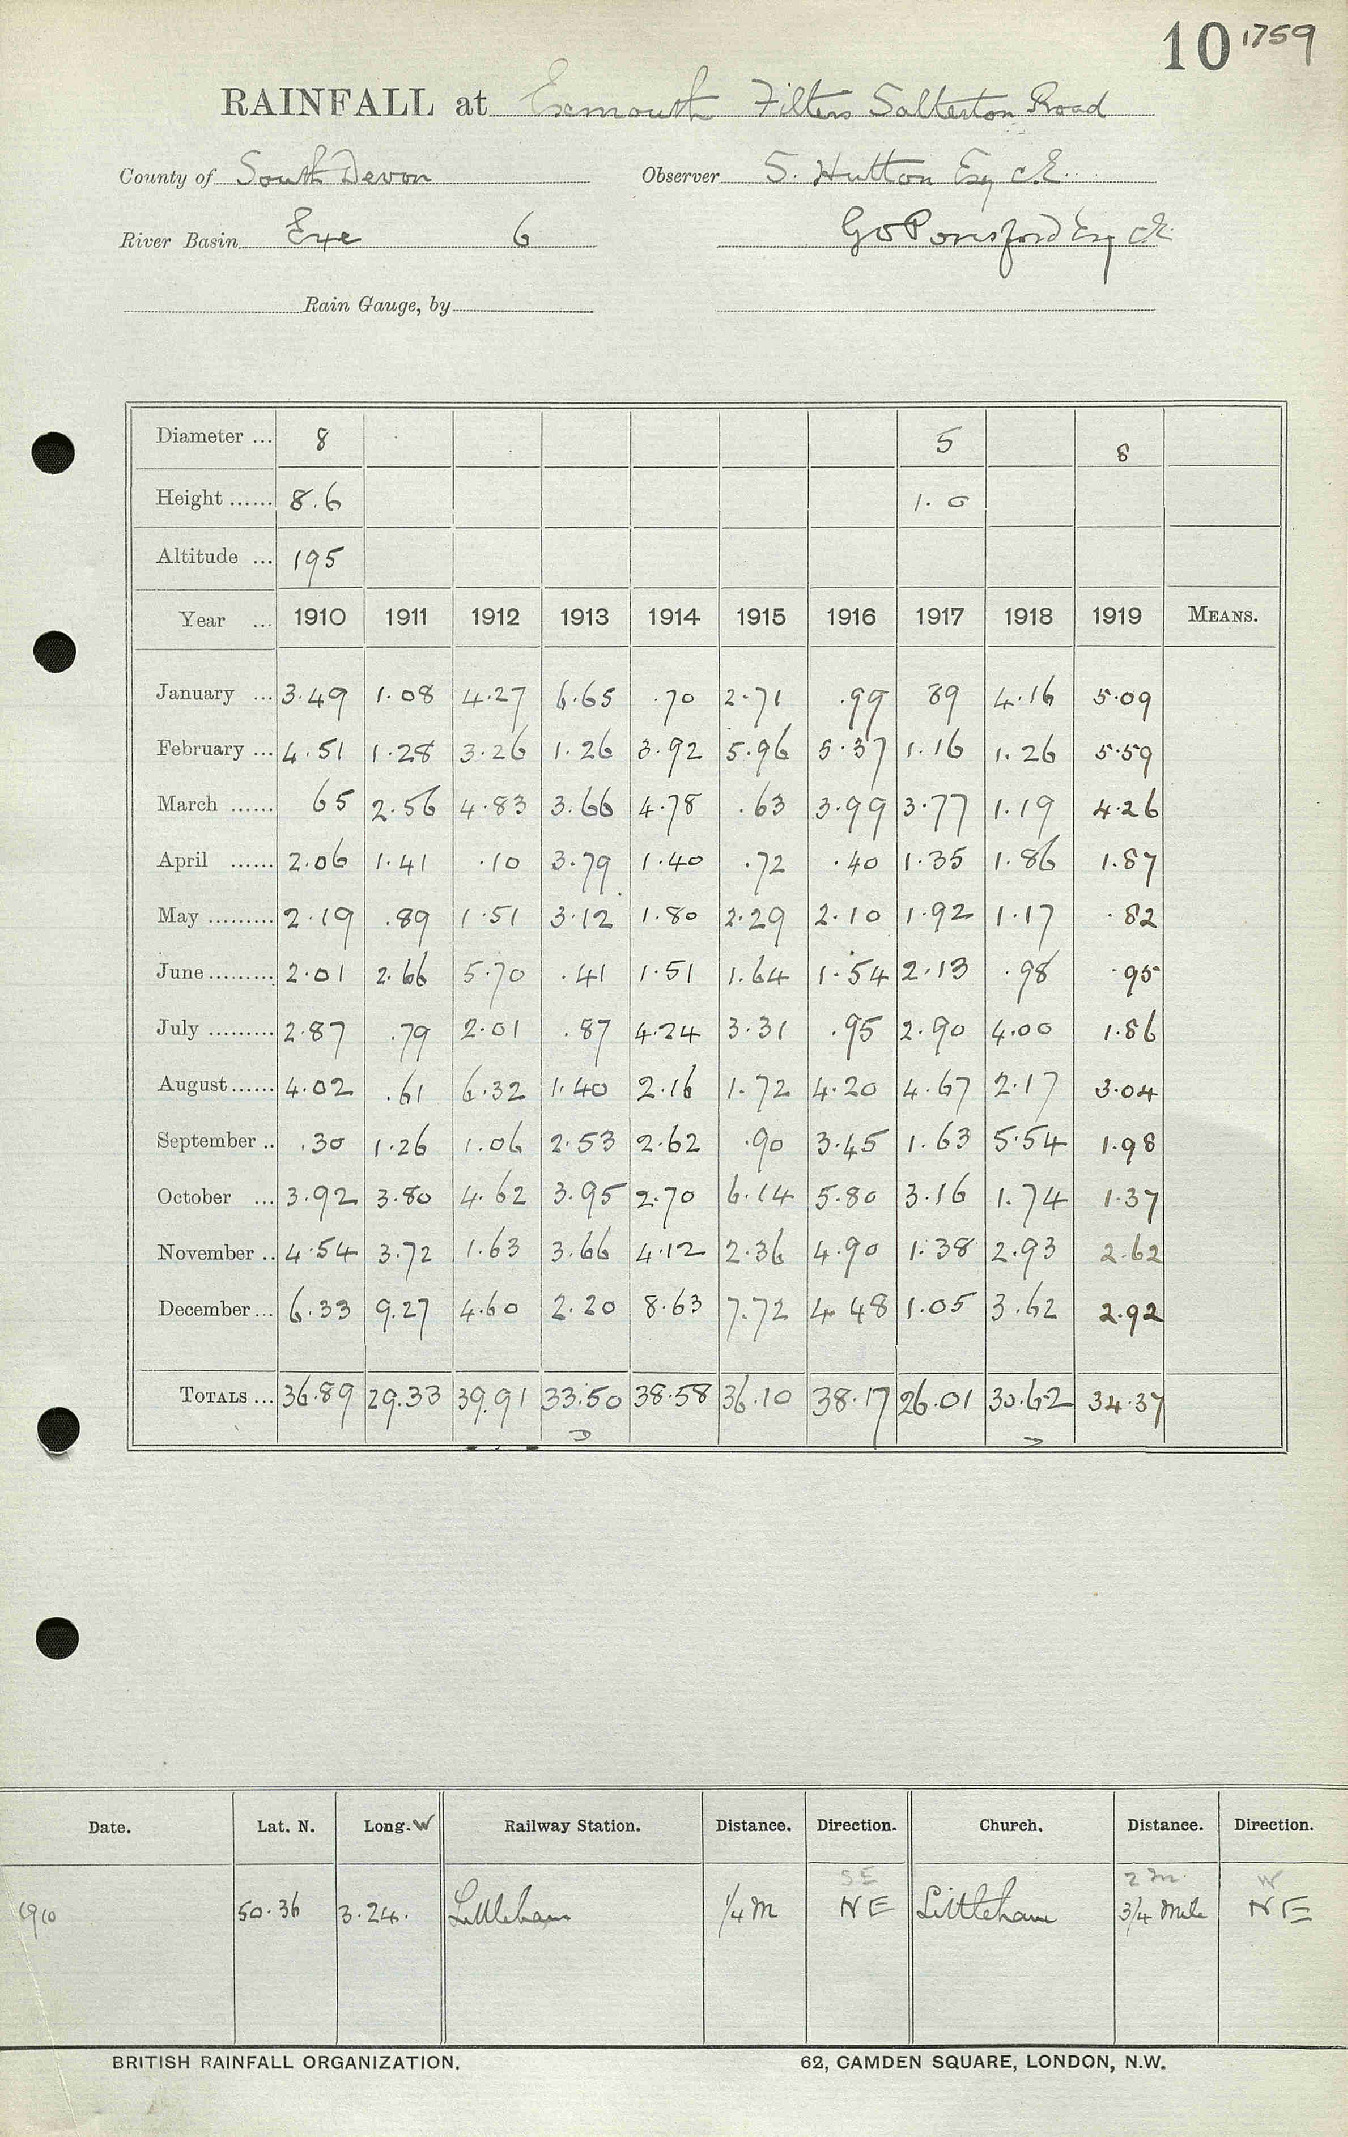 10 1759
RAINFALL at Exmouth Filters Salterton Road
County of South Devon Observer S. Hutton Esq C.E.
River Basin Exe 6 G O Ponsford Esq CE
Rain Gauge, by
Diameter ... 8 5 8
Height ...... 8.6 1.0
Altitude ... 195
Year ... 1910 1911 1912 1913 1914 1915 1916 1917 1918 1919 MEANS.
January ... 3.49 1.08 4.27 6.65 .70 2.71 .99 89 4.16 5.09
February ... 4.51 1.28 3.26 1.26 3.92 5.96 5.37 1.16 1.26 5.59
March ...... 65 2.56 4.83 3.66 4.78 .63 3.99 3.77 1.19 4.26
April ...... 2.06 1.41 .10 3.79 1.40 .72 .40 1.35 1.86 1.87
May ......... 2.19 .89 1.51 3.12 1.80 2.29 2.10 1.92 1.17 .82
June ......... 2.01 2.66 5.70 .41 1.51 1.64 1.54 2.13 .98 .95
July ......... 2.87 .79 2.01 .87 4.24 3.31 .95 2.90 4.00 1.86
August ...... 4.02 .61 6.32 1.40 2.16 1.72 4.20 4.67 2.17 3.04
September .. .30 1.26 1.06 2.53 2.62 .90 3.45 1.63 5.54 1.98
October ... 3.92 3.80 4.62 3.95 2.70 6.14 5.80 3.16 1.74 1.37
November .. 4.54 3.72 1.63 3.66 4.12 2.36 4.90 1.38 2.93 2.62
December ... 6.33 9.27 4.60 2.20 8.63 7.72 4 48 1.05 3.62 2.92
TOTALS ... 36.89 29.33 39.91 33.50 38.58 36.10 38.17 26.01 30.62 34.37
Date. Lat. N. Long. W Railway Station. Distance. Direction. Church. Distance. Direction.
SE 2 m. W
1910 50.36 3.24. Littleham 1/4 m NE Littleham 3/4 Mile NE
BRITISH RAINFALL ORGANIZATION. 62, CAMDEN SQUARE, LONDON, N.W.